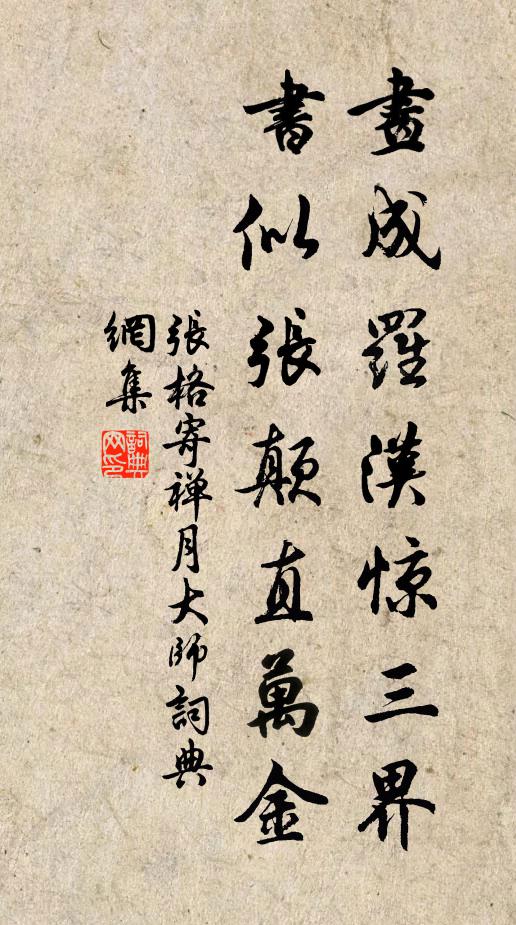 畫成羅漢惊三界
書似張顛直萬金
張格寄禅月大師詞典
網集
詞典
网印